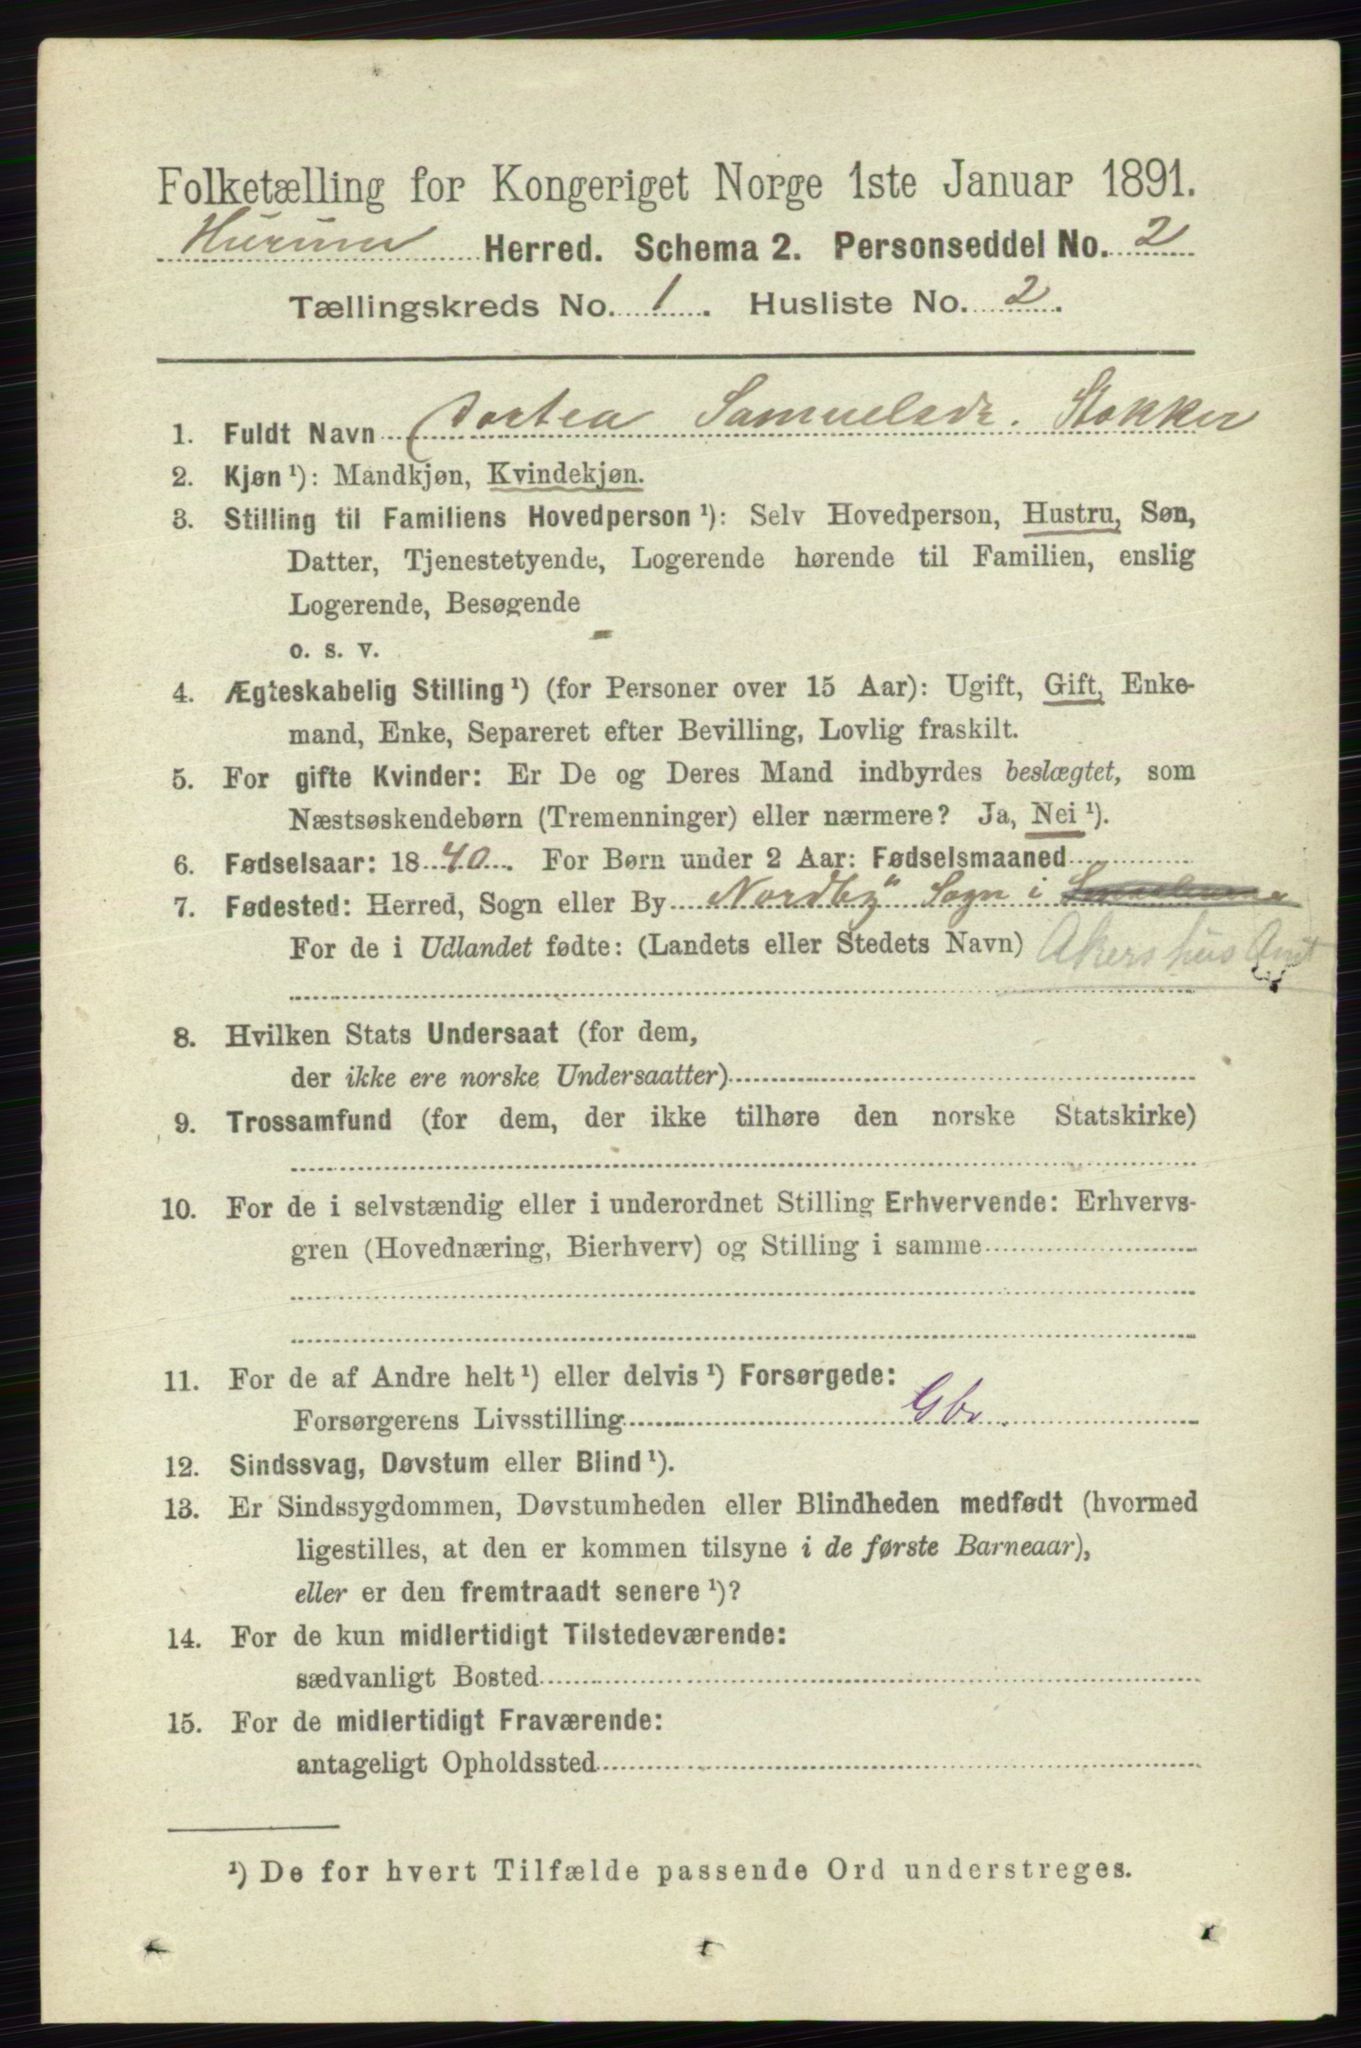 Folketælling for Kongeriget Norge 1ste Januar 1891.
Hurum Herred. Schema 2. Personseddel No. 2
Tællingskreds No. 1. Husliste No. 2.
1. Fuldt Navn Dortea Samuelsdr. Stokker
2. Kjøn ¹): Mandkjøn, Kvindekjøn.
3. Stilling til Familiens Hovedperson ¹): Selv Hovedperson, Hustru, Søn,
Datter, Tjenestetyende, Logerende hørende til Familien, enslig
Logerende, Besøgende
o. s. v.
4. Ægteskabelig Stilling ¹) (for Personer over 15 Aar): Ugift, Gift, Enke-
mand, Enke, Separeret efter Bevilling, Lovlig fraskilt.
5. For gifte Kvinder: Er De og Deres Mand indbyrdes beslægtet, som
Næstsøskendebørn (Tremenninger) eller nærmere? Ja, Nei ¹).
6. Fødselsaar: 1840. For Børn under 2 Aar: Fødselsmaaned
7. Fødested: Herred, Sogn eller By Nordby Sogn i
For de i Udlandet fødte: (Landets eller Stedets Navn) Akershus Amt
8. Hvilken Stats Undersaat (for dem,
der ikke ere norske Undersaatter)
9. Trossamfund (for dem, der ikke tilhøre den norske Statskirke)
10. For de i selvstændig eller i underordnet Stilling Erhvervende: Erhvervs-
gren (Hovednæring, Bierhverv) og Stilling i samme
11. For de af Andre helt ¹) eller delvis ¹) Forsørgede:
Forsørgerens Livsstilling Gbr.
12. Sindssvag, Døvstum eller Blind ¹).
13. Er Sindssygdommen, Døvstumheden eller Blindheden medfødt (hvormed
ligestilles, at den er kommen tilsyne i de første Barneaar),
eller er den fremtraadt senere ¹)?
14. For de kun midlertidigt Tilstedeværende:
sædvanligt Bosted
15. For de midlertidigt Fraværende:
antageligt Opholdssted
¹) De for hvert Tilfælde passende Ord understreges.